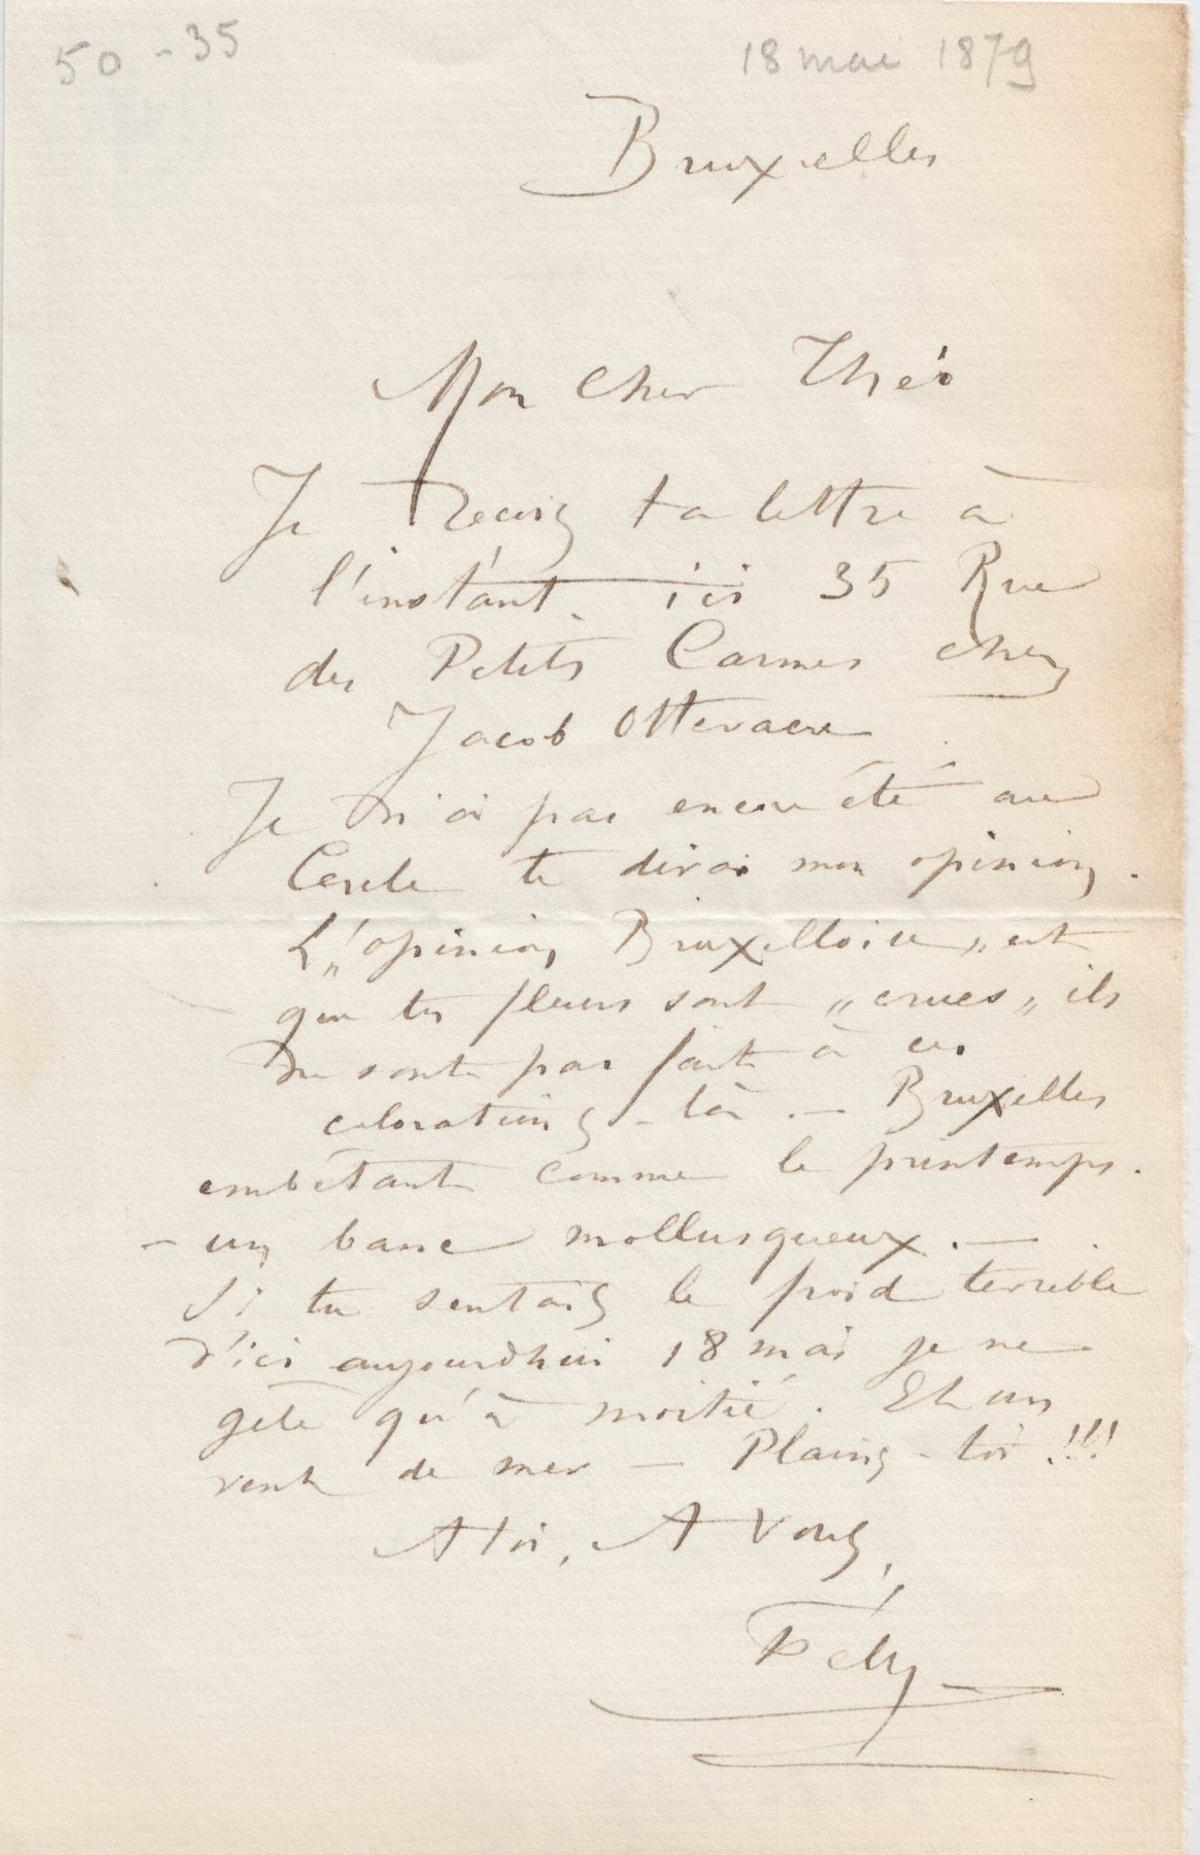 50 - 35
18 mai 1879
Bruxelles
Mon Cher Théo
Je reçois ta lettre à
l'instant. ici 35 Rue
des Petits Carmes chez
Jacob Ottevaere
Je n'ai pas encore été au
Cercle te dirai mon opinion.
L'„opinion Bruxelloise„ est
que tes fleurs sont „crues„ ils
ne sont pas fait à ces
colorations-là. — Bruxelles
embêtant comme le printemps.
- un banc mollusqueux. —
Si tu sentais le froid terrible
d'ici aujourdhui 18 mai je ne
gèle qu'à moitié. Et un
vent de mer — Plains-toi !!!
A toi, A vous,
Fély